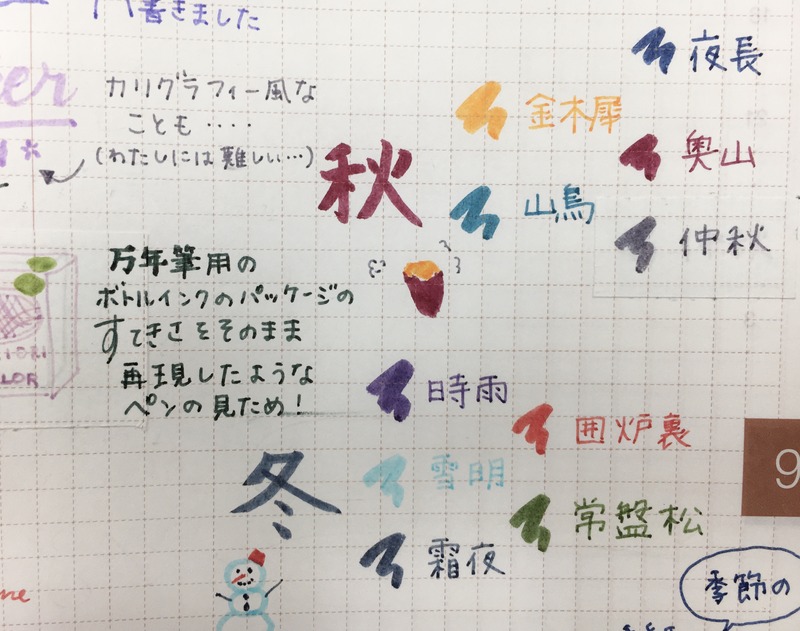 書きました
カリグラフィー風な
ことも・・・・
(わたしには難しい…)
秋
夜長
金木犀
奥山
山鳥
仲秋
万年筆用の
ボトルインクのパッケージの
すてきさをそのまま
再現したような
ペンの見ため!
冬
時雨
囲炉裏
雪明
常盤松
霜夜
9
季節の